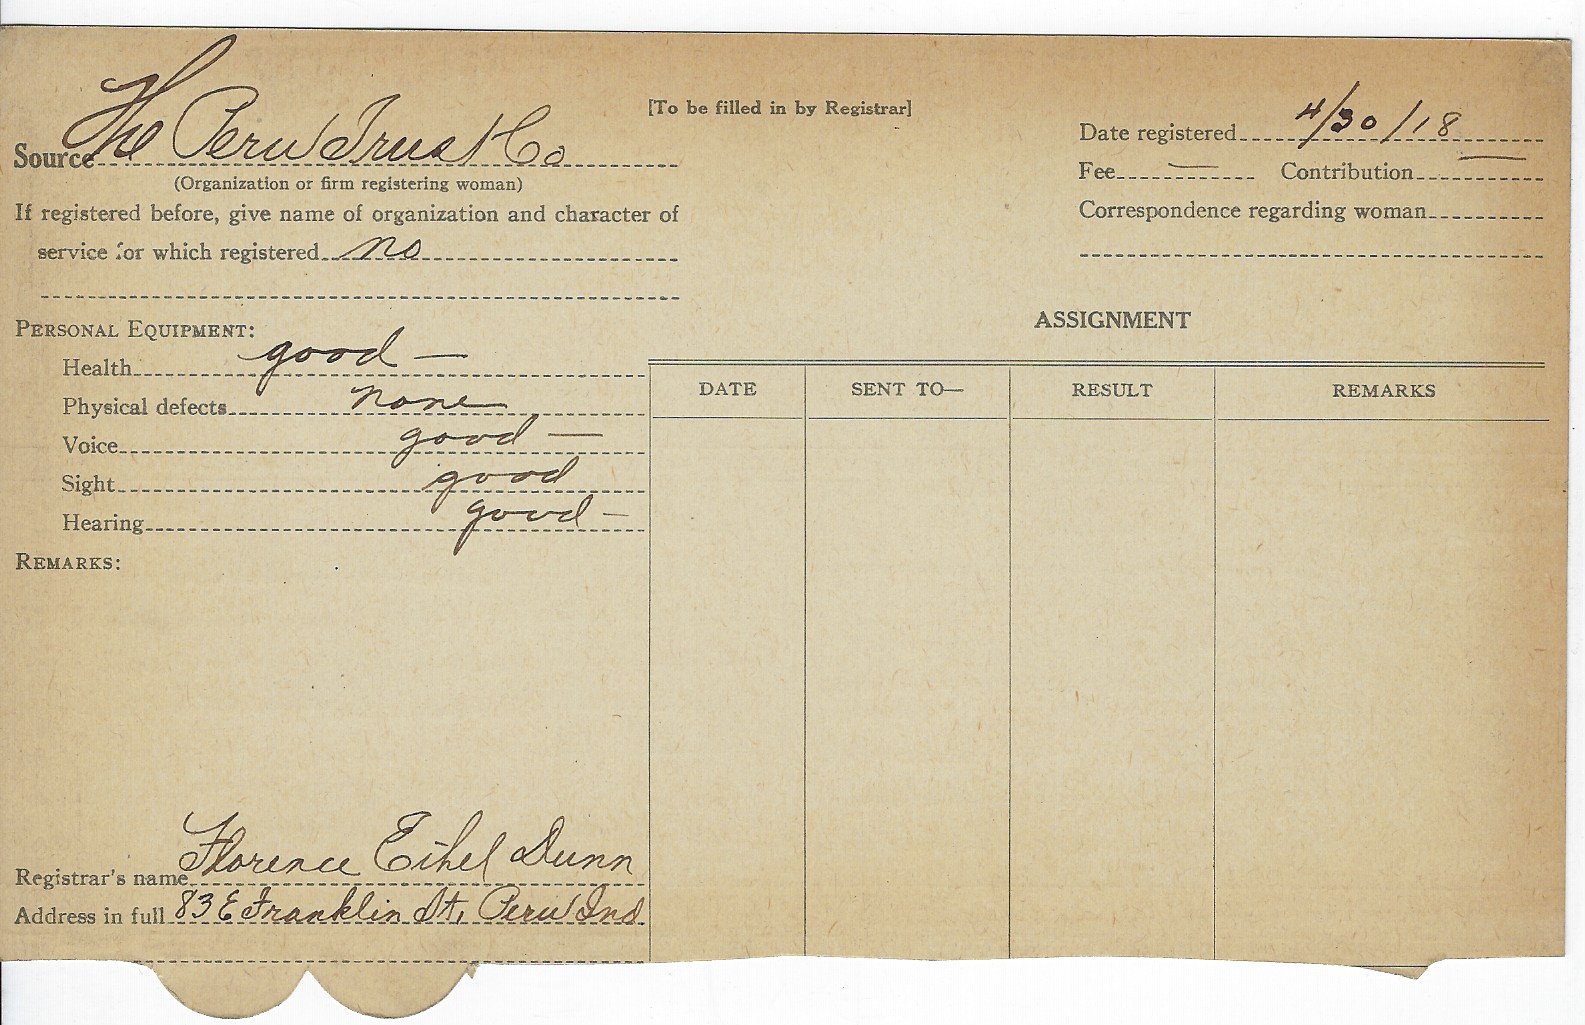 [To be filled in by Registrar]
Source The Peru Trust Co
(Organization or firm registering woman)
If registered before, give name of organization and character of
service for which registered no
PERSONAL EQUIPMENT:
Health good —
Physical defects none
Voice good —
Sight good
Hearing good —
REMARKS:
Registrar's name Florence Ethel Dunn
Address in full 83 E Franklin St, Peru Ind.
Date registered 4/30/18
Fee — Contribution —
Correspondence regarding woman
ASSIGNMENT
DATE SENT TO— RESULT REMARKS